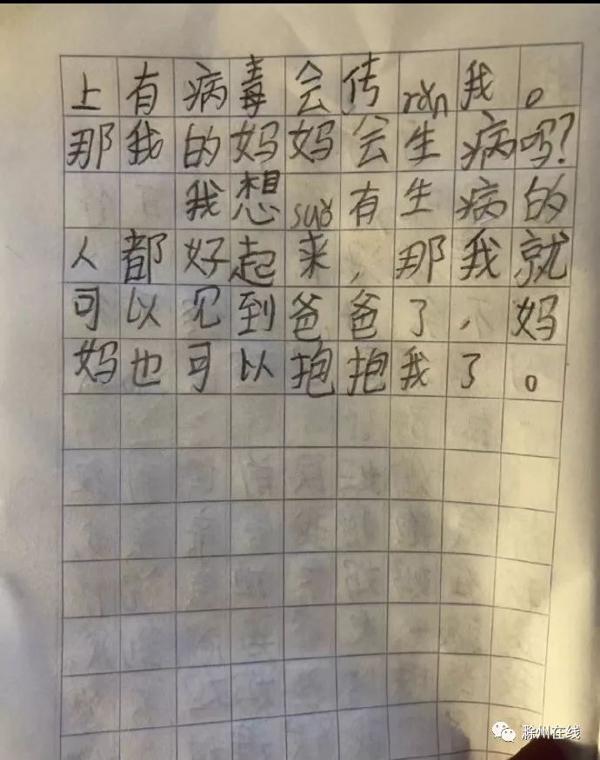 上有病毒会传rǎn我。
那我的妈妈会生病吗?
我想suǒ有生病的
人都好起来,那我就
可以见到爸爸了,妈
妈也可以抱抱我了。
滁州在线